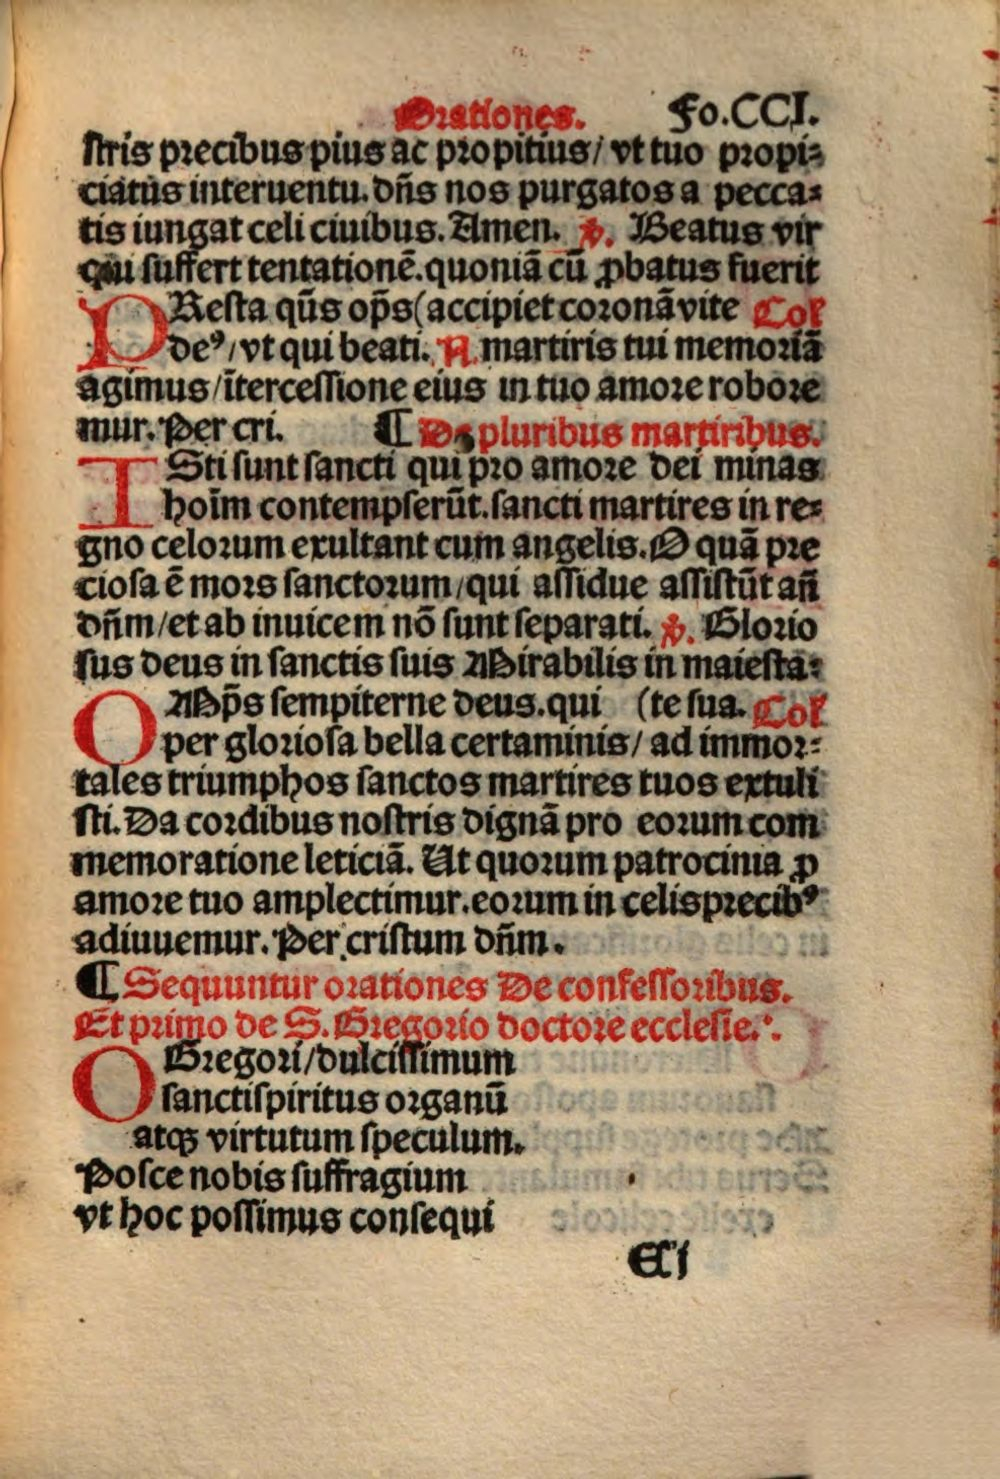 Orationes. Fo.CCI.
stris precibus pius ac propitius/ vt tuo propi=
ciatus interuentu. dn̄s nos purgatos a pecca=
tis iungat celi ciuibus. Amen. ℣. Beatus vir
qui suffert tentationē. quoniā cū ꝓbatus fuerit
PResta qūs op̄s (accipiet coronā vite Col
deꝰ/ vt qui beati. N. martiris tui memoriā
agimus/ ītercessione eius in tuo amore robore
mur. Per cri. ¶ De pluribus martiribus.
ISti sunt sancti qui pro amore dei minas
hoīm contempserūt. sancti martires in re=
gno celorum exultant cum angelis. O quā pre
ciosa ē mors sanctorum/ qui assidue assistūt an̄
dn̄m/ et ab inuicem nō sunt separati. ℣. Glorio
sus deus in sanctis suis Mirabilis in maiesta=
OMp̄s sempiterne deus. qui (te sua. Col
per gloriosa bella certaminis/ ad immor=
tales triumphos sanctos martires tuos extuli
sti. Da cordibus nostris dignā pro eorum com
memoratione leticiā. Ut quorum patrocinia ꝓ
amore tuo amplectimur. eorum in celis precibꝰ
adiuuemur. Per cristum dn̄m.
¶ Sequuntur orationes De confessoribus.
Et primo de S. Gregorio doctore ecclesie.
O Gregori/ dulcissimum
sanctispiritus organū
atqꝫ virtutum speculum.
Posce nobis suffragium
vt hoc possimus consequi
CC i